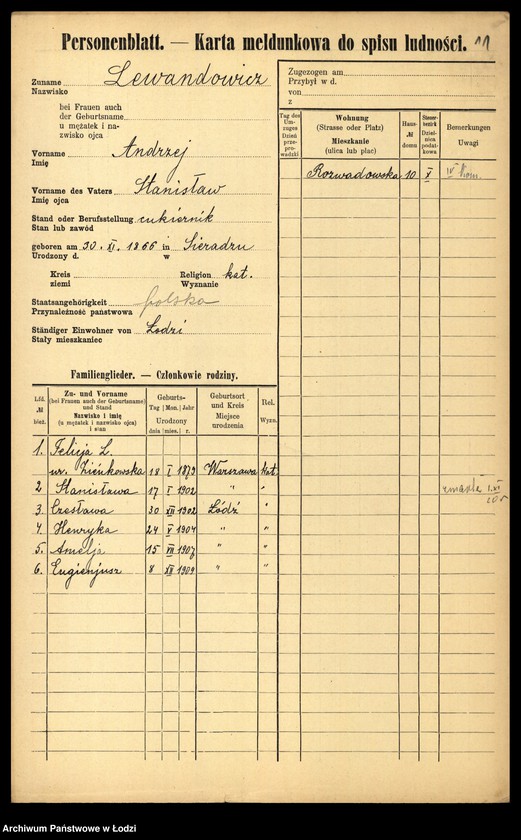 Personenblatt. — Karta meldunkowa do spisu ludności. 11
Zuname Lewandowicz
Nazwisko
bei Frauen auch
der Geburtsname
u mężatek i na-
zwisko ojca
Vorname Andrzej
Imię
Vorname des Vaters Stanisław
Imię ojca
Stand oder Berufsstellung cukiernik
Stan lub zawód
geboren am 30. XI. 1866 in Sieradzu
Urodzony d. w
Kreis Religion kat.
ziemi Wyznanie
Staatsangehörigkeit polska
Przynależność państwowa
Ständiger Einwohner von Łodzi
Stały mieszkaniec
Zugezogen am
Przybył w d.
von
z
Tag des Um-zuges Dzień prze-pro-wadzki
Wohnung (Strasse oder Platz) Mieszkanie (ulica lub plac)
Haus-№ domu
Steuer-bezirk Dziel-nica podat-kowa
Bemerkungen Uwagi
Rozwadowska 10 X IV kom.
Familienglieder. — Członkowie rodziny.
Lfd. № bież.
Zu- und Vorname (bei Frauen auch der Geburtsname) und Stand Nazwisko i imię (u mężatek i nazwisko ojca) i stan
Geburts- Tag Mon. Jahr Urodzony dnia mies. r.
Geburtsort und Kreis Miejsce urodzenia
Rel. Wyzn.
1. Felicja L.
ur. Zieńkowska 18 I 1879 Warszawa kat.
2. Stanisława 17 I 1902 " " zmarła 1.XI
3. Czesława 30 XII 1902 Łódź "
4. Henryka 24 V 1904 " "
5. Amelja 15 VII 1907 " "
6. Eugienjusz 8 XII 1909 " "
Archiwum Państwowe w Łodzi